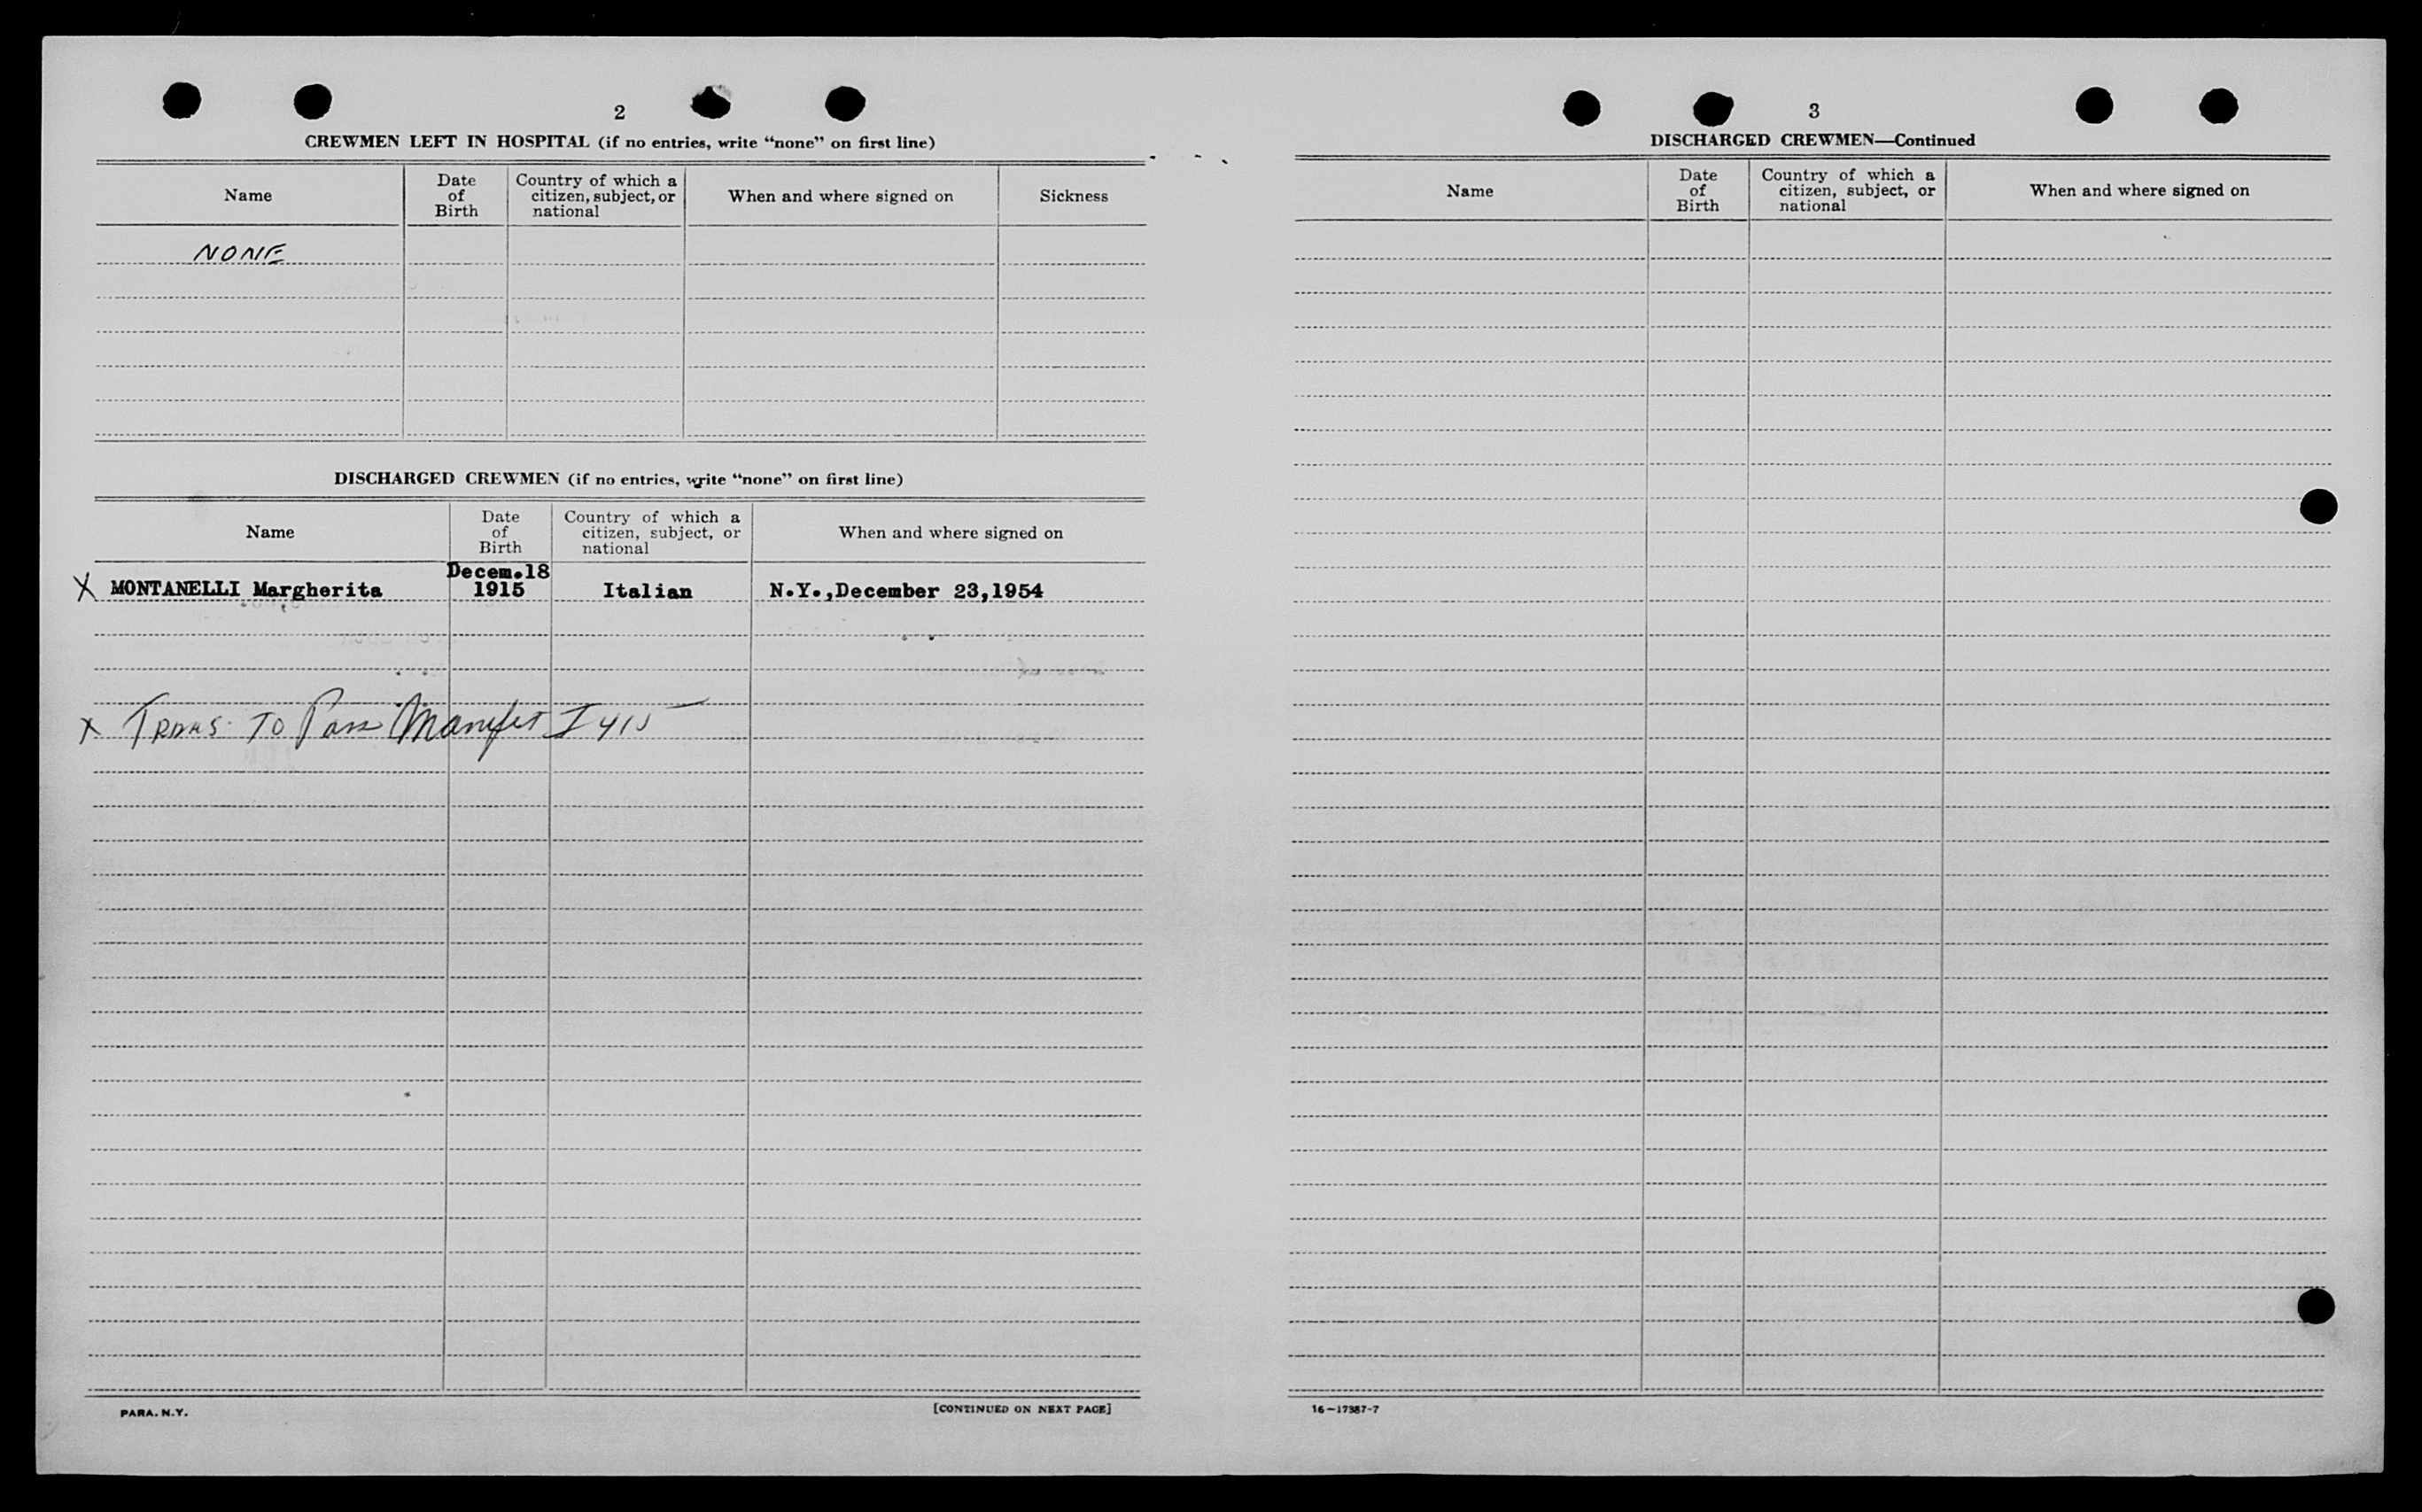 2
CREWMEN LEFT IN HOSPITAL (if no entries, write “none” on first line)
Name
Date
of
Birth
Country of which a
citizen, subject, or
national
When and where signed on
Sickness
NONE
DISCHARGED CREWMEN (if no entries, write “none” on first line)
Name
Date
of
Birth
Country of which a
citizen, subject, or
national
When and where signed on
X MONTANELLI Margherita
Decem.18
1915
Italian
N.Y.,December 23,1954
X TRANS. TO Pass Manifest I 415
PARA. N.Y.
[CONTINUED ON NEXT PAGE]
3
DISCHARGED CREWMEN—Continued
Name
Date
of
Birth
Country of which a
citizen, subject, or
national
When and where signed on
16—17387-7